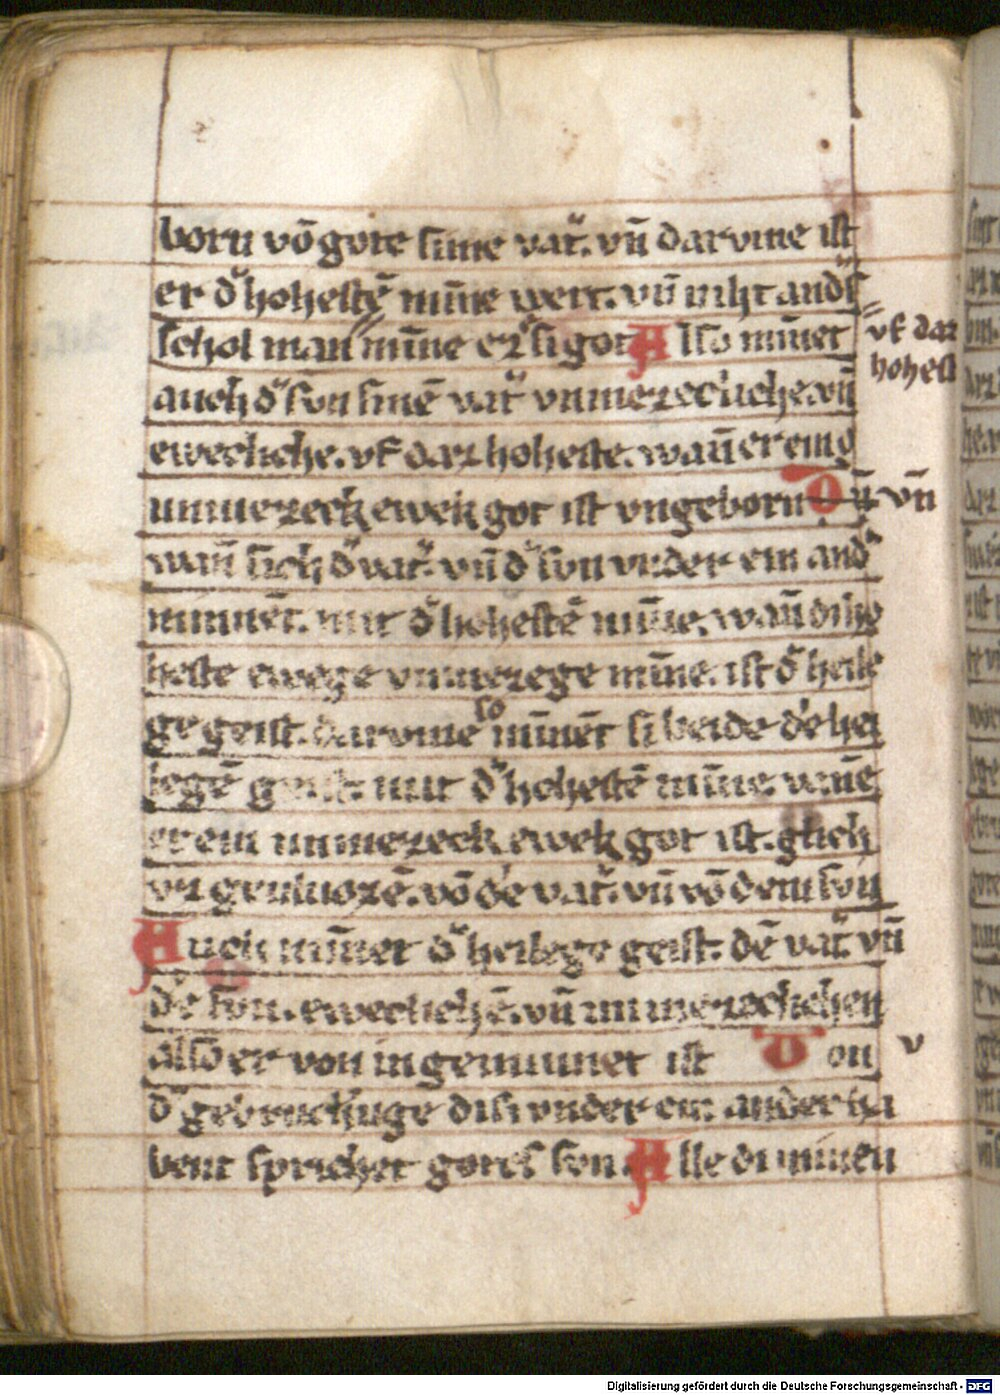 born vō gote sime vat̕. vn̄ darvme ist
er d̕ hohestē mīne wert. vn̄ niht and̕s
schol man mīne er si got Also mīnet
vf daz
hohest
auch d̕ svn sinē vat̕ vnmezecliche. vn̄
ewecliche. vf daz hoheste. wan̄ er ein
unmezeck ewek got ist vngeborn Vn̄ vn̄
wan̄ sich d̕ vat̕. vn̄ d̕ svn vnder ein and̕
minnēt. mit d̕ hohestē mīne. wan̄ di ho
heste ewege vnmezege mīne. ist d̕ heile
ge geist. darvme so mīnēt si beide dē hei
legē geist. mit d̕ hohestē mīne. wane
er ein unmezeck ewek got ist. glich
vō dē vat̕. vn̄ vō dem svn
Auch mīnet d̕ heilege geist. dē vat̕ vn̄
dē svn. eweclichē. vn̄ unmezeclichen
also er von in geminnet ist Von v
d̕ gebruchūge di si vnder ein ander ha
bent sprichet gotes svn. Alle di minen